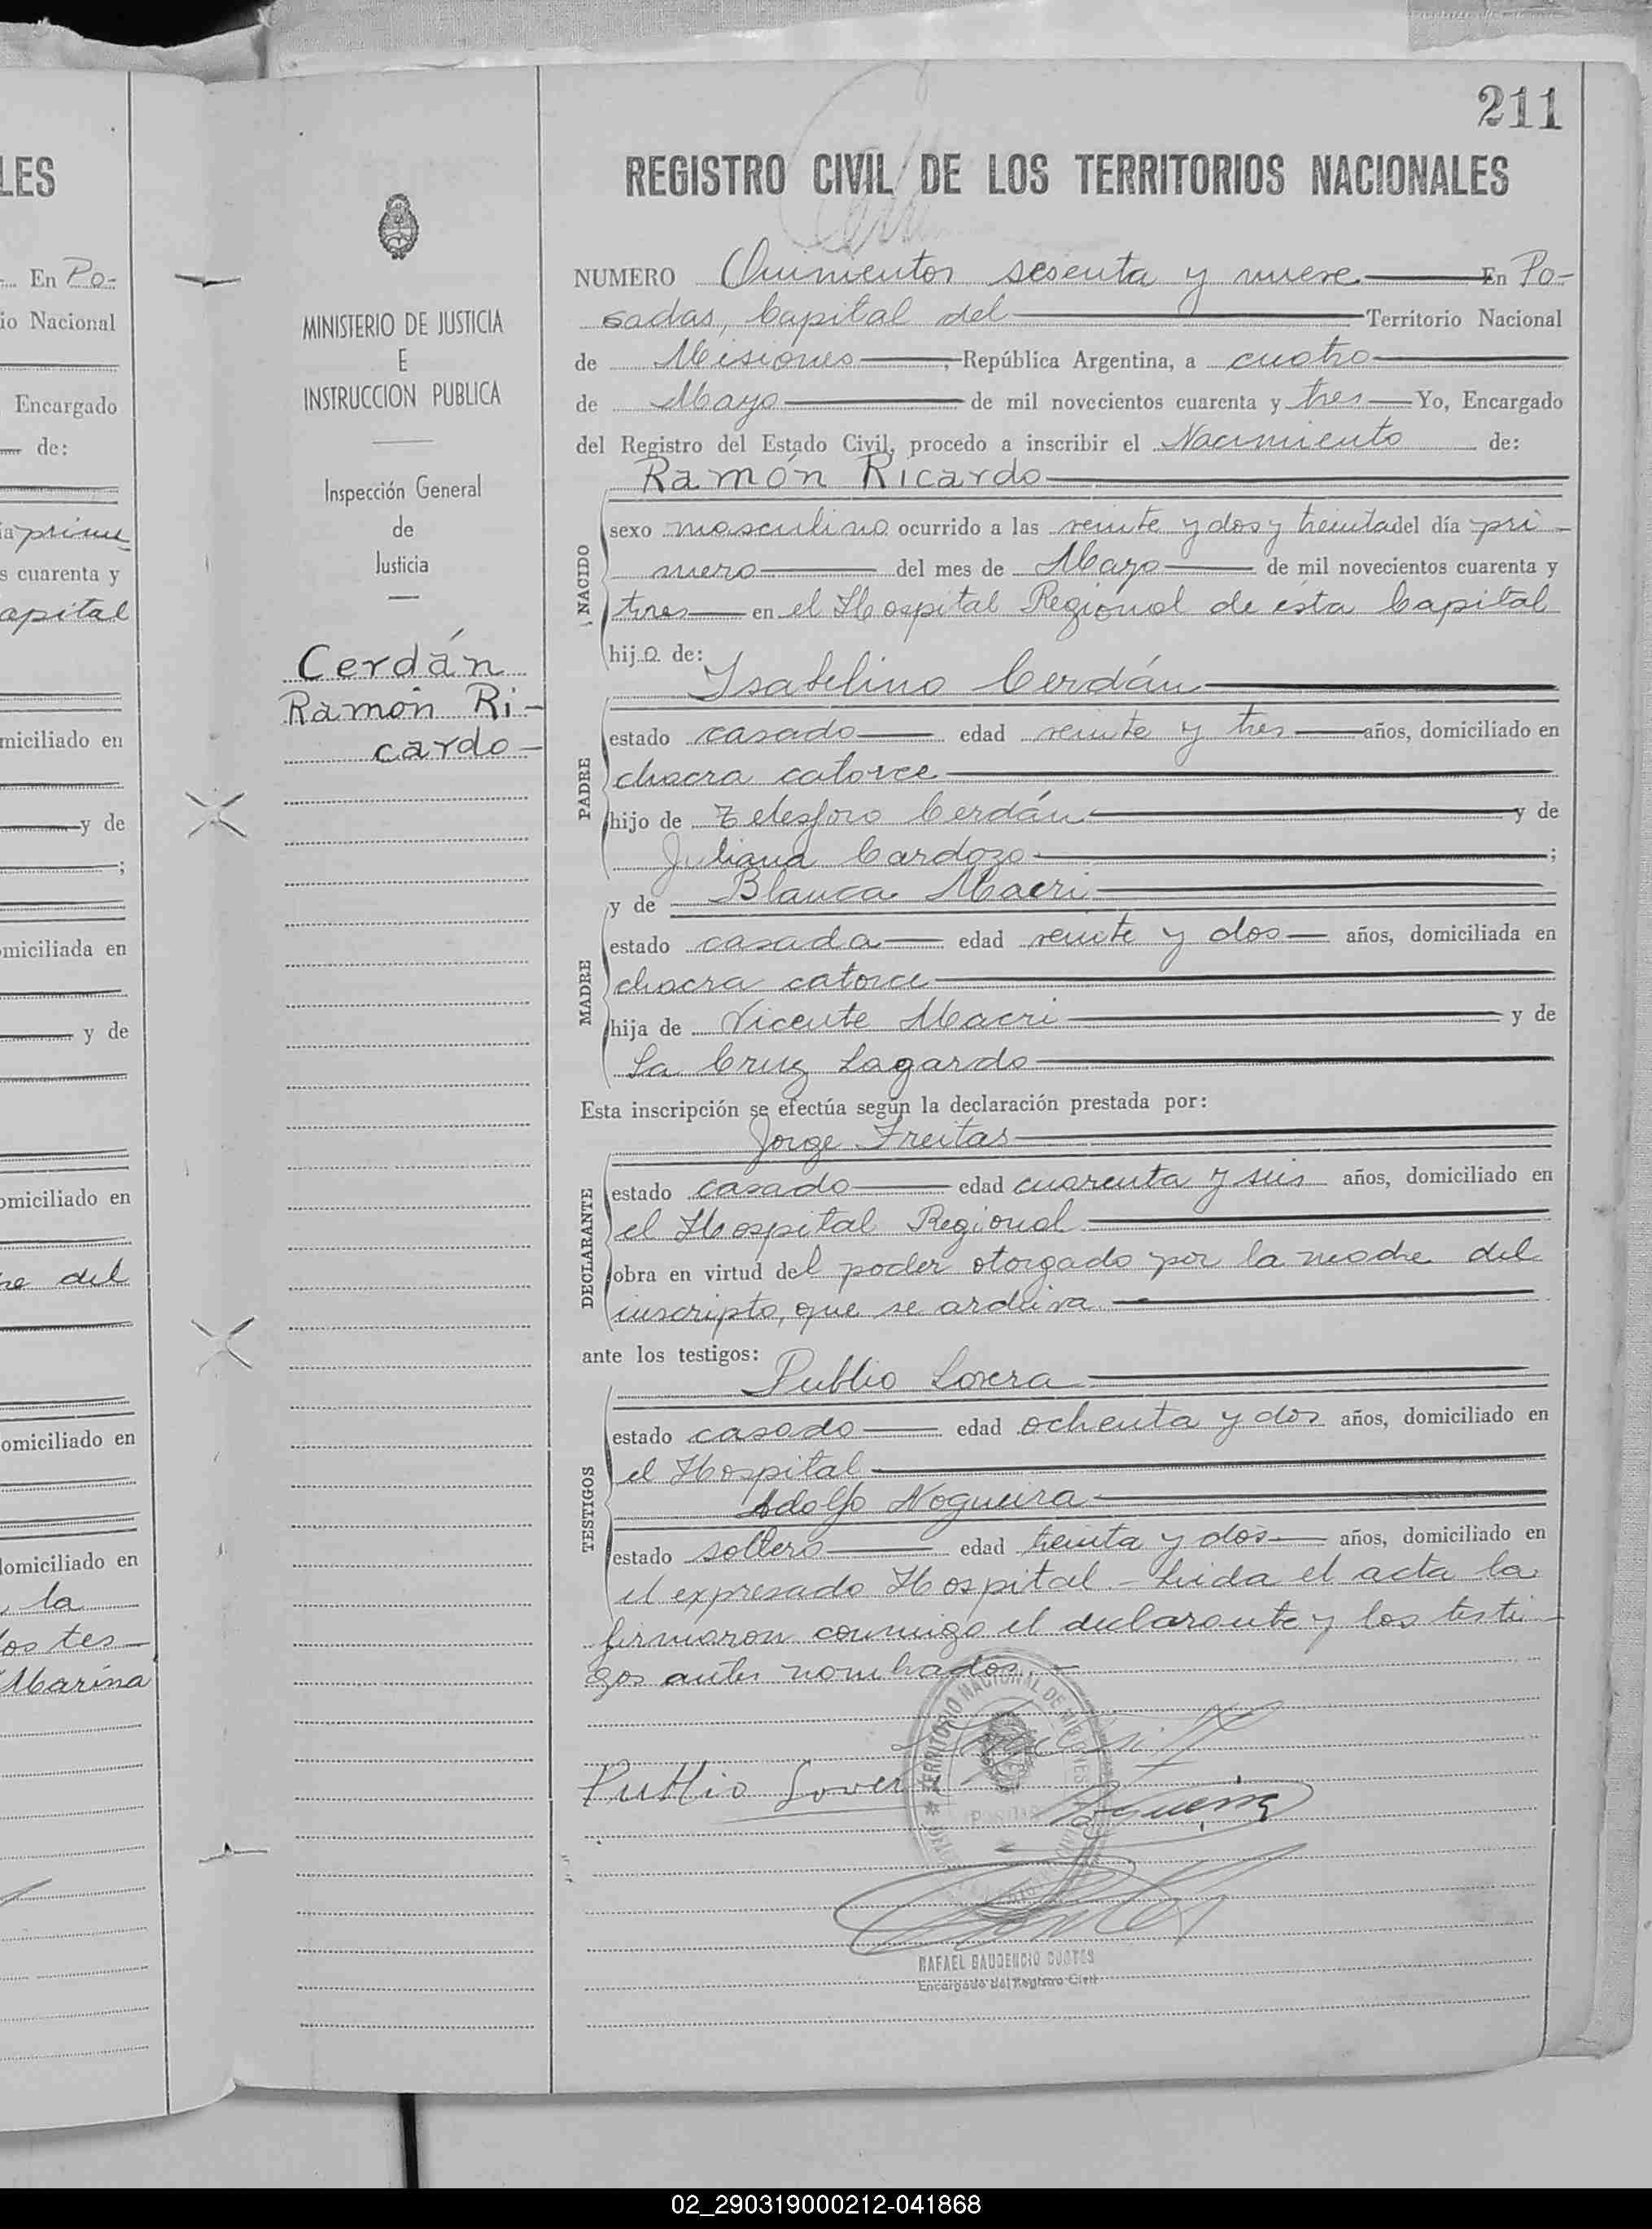 LES
En Po-
io Nacional
Encargado
de:
ia prime
s cuarenta y
apital
miciliado en
y de
;
omiciliada en
y de
omiciliado en
re del
omiciliado en
domiciliado en
la
los tes-
Marina
MINISTERIO DE JUSTICIA
E
INSTRUCCION PUBLICA
Inspección General
de
Justicia
Cerdán
Ramón Ri-
cardo-
211
REGISTRO CIVIL DE LOS TERRITORIOS NACIONALES
NUMERO Quinientos sesenta y nueve En Po-
sadas, Capital del Territorio Nacional
de Misiones, República Argentina, a cuatro
de Mayo de mil novecientos cuarenta y tres Yo, Encargado
del Registro del Estado Civil, procedo a inscribir el Nacimiento de:
Ramón Ricardo
NACIDO
sexo masculino ocurrido a las veinte y dos y treinta del día pri-
mero del mes de Mayo de mil novecientos cuarenta y
tres en el Hospital Regional de ésta Capital
hijo de:
Isabelino Cerdán
PADRE
estado casado edad veinte y tres años, domiciliado en
chacra catorce
hijo de Telesforo Cerdán y de
Juliana Cardozo;
y de Blanca Macri
MADRE
estado casada edad veinte y dos años, domiciliada en
chacra catorce
hija de Vicente Macri y de
La Cruz Lagardo
Esta inscripción se efectúa según la declaración prestada por:
Jorge Freitas
DECLARANTE
estado casado edad cuarenta y seis años, domiciliado en
el Hospital Regional
obra en virtud del poder otorgado por la madre del
inscripto, que se archiva
ante los testigos:
Publio Lovera
TESTIGOS
estado casado edad ochenta y dos años, domiciliado en
el Hospital
Adolfo Nogueira
estado soltero edad treinta y dos años, domiciliado en
el expresado Hospital.- Leida el acta la
firmaron conmigo el declarante y los testi-
gos antes nombrados.-
TERRITORIO NACIONAL DE MISIONES
POSADAS
Publio Lover
RAFAEL GAUDENCIO CORTES
Encargado del Registro Civil
02_290319000212-041868